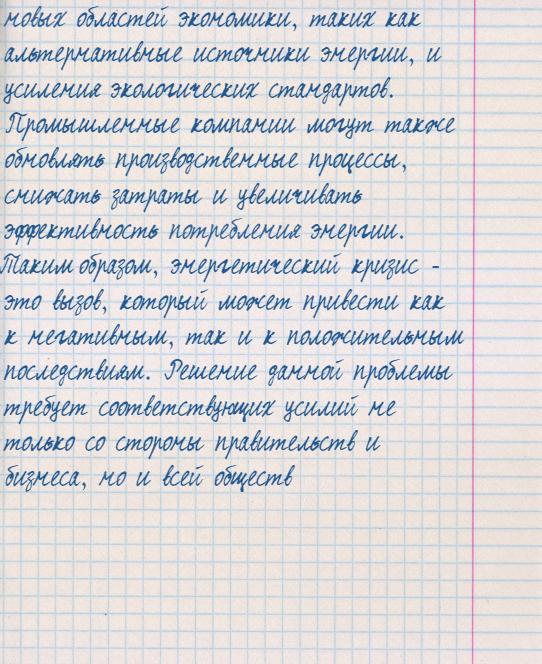 новых областей экономики, таких как
альтернативные источники энергии, и
усиления экологических стандартов.
Промышленные компании могут также
обновлять производственные процессы,
снижать затраты и увеличивать
эффективность потребления энергии.
Таким образом, энергетический кризис -
это вызов, который может привести как
к негативным, так и к положительным
последствиям. Решение данной проблемы
требует соответствующих усилий не
только со стороны правительств и
бизнеса, но и всей обществ